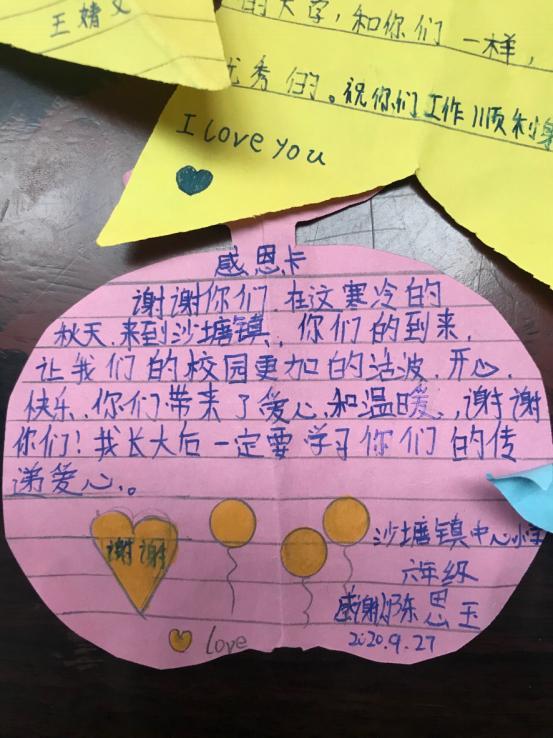 王婧文
的大字，和你们一样，
优秀们的。祝你们工作顺利
I love you
感恩卡
谢谢你们，在这寒冷的
秋天，来到沙塘镇，你们的到来，
让我们的校园更加的活波、开心、
快乐、你们带来了爱心和温暖，谢谢
你们！我长大后一定要学习你们的传
递爱心。
谢谢
love
沙塘镇中心小学
六年级
感谢 陈思玉
2020.9.27